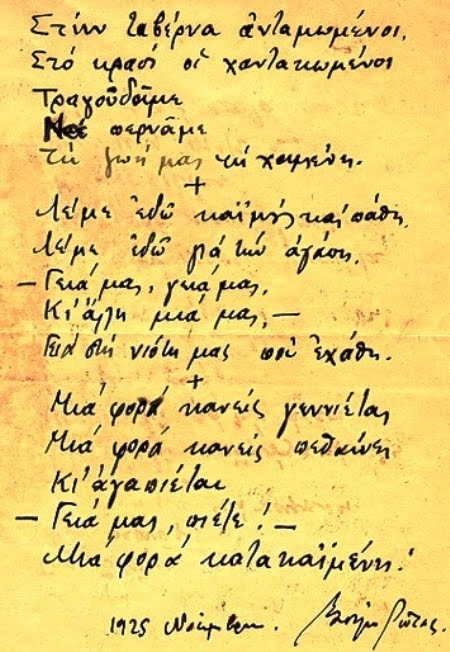 Στήν ταβέρνα ἀνταμωμένοι,
Στό κρασί οἱ χαντακωμένοι
Τραγουδοῦμε
Καί περνᾶμε
Τή ζωή μας τή χαμένη.
+
Λέμε ἐδῶ καϊμούς καί πάθη,
Λέμε ἐδῶ γιά τήν ἀγάπη,
— Γειά μας, γειά μας,
Κι' ἄλλη μιά μας, —
Γειά στή νιότη μας πού ἐχάθη.
+
Μιά φορά κανείς γεννιέται
Μιά φορά κανείς πεθαίνει
Κι' ἀγαπιέται
— Γειά μας, πιέτε! —
Μιά φορά κατακαϊμένοι!
1925 Νοέμβρη. Ρώτας